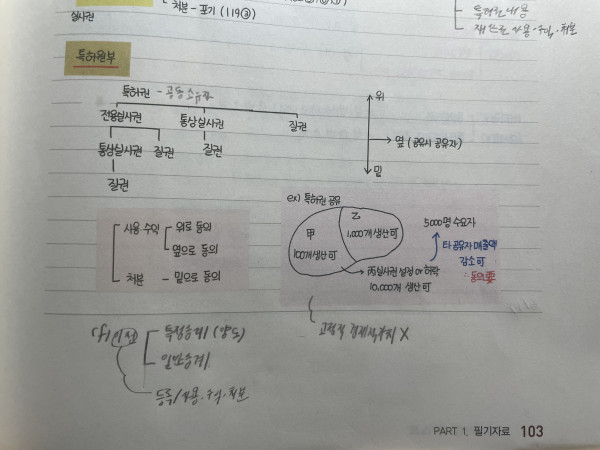 처분 - 포기 (119③)
실시권
특허권 내용
특허원부
특허권 - 공동소유자
전용실시권 통상실시권 질권
통상실시권 질권 질권
질권
위
옆 (공유시 공유자)
밑
사용 수익 위로 동의
옆으로 동의
처분 - 밑으로 동의
ex) 특허권 공유
甲
100개 생산可
乙
1,000개 생산可
丙 실시권 설정 or 허락
10,000개 생산可
5000명 수요자
타 공유자 매출액
감소 可
∴ 동의 要
cf) 이전
특정승계 (양도)
일반승계
등록/사용·수익·처분
PART 1. 필기자료 103